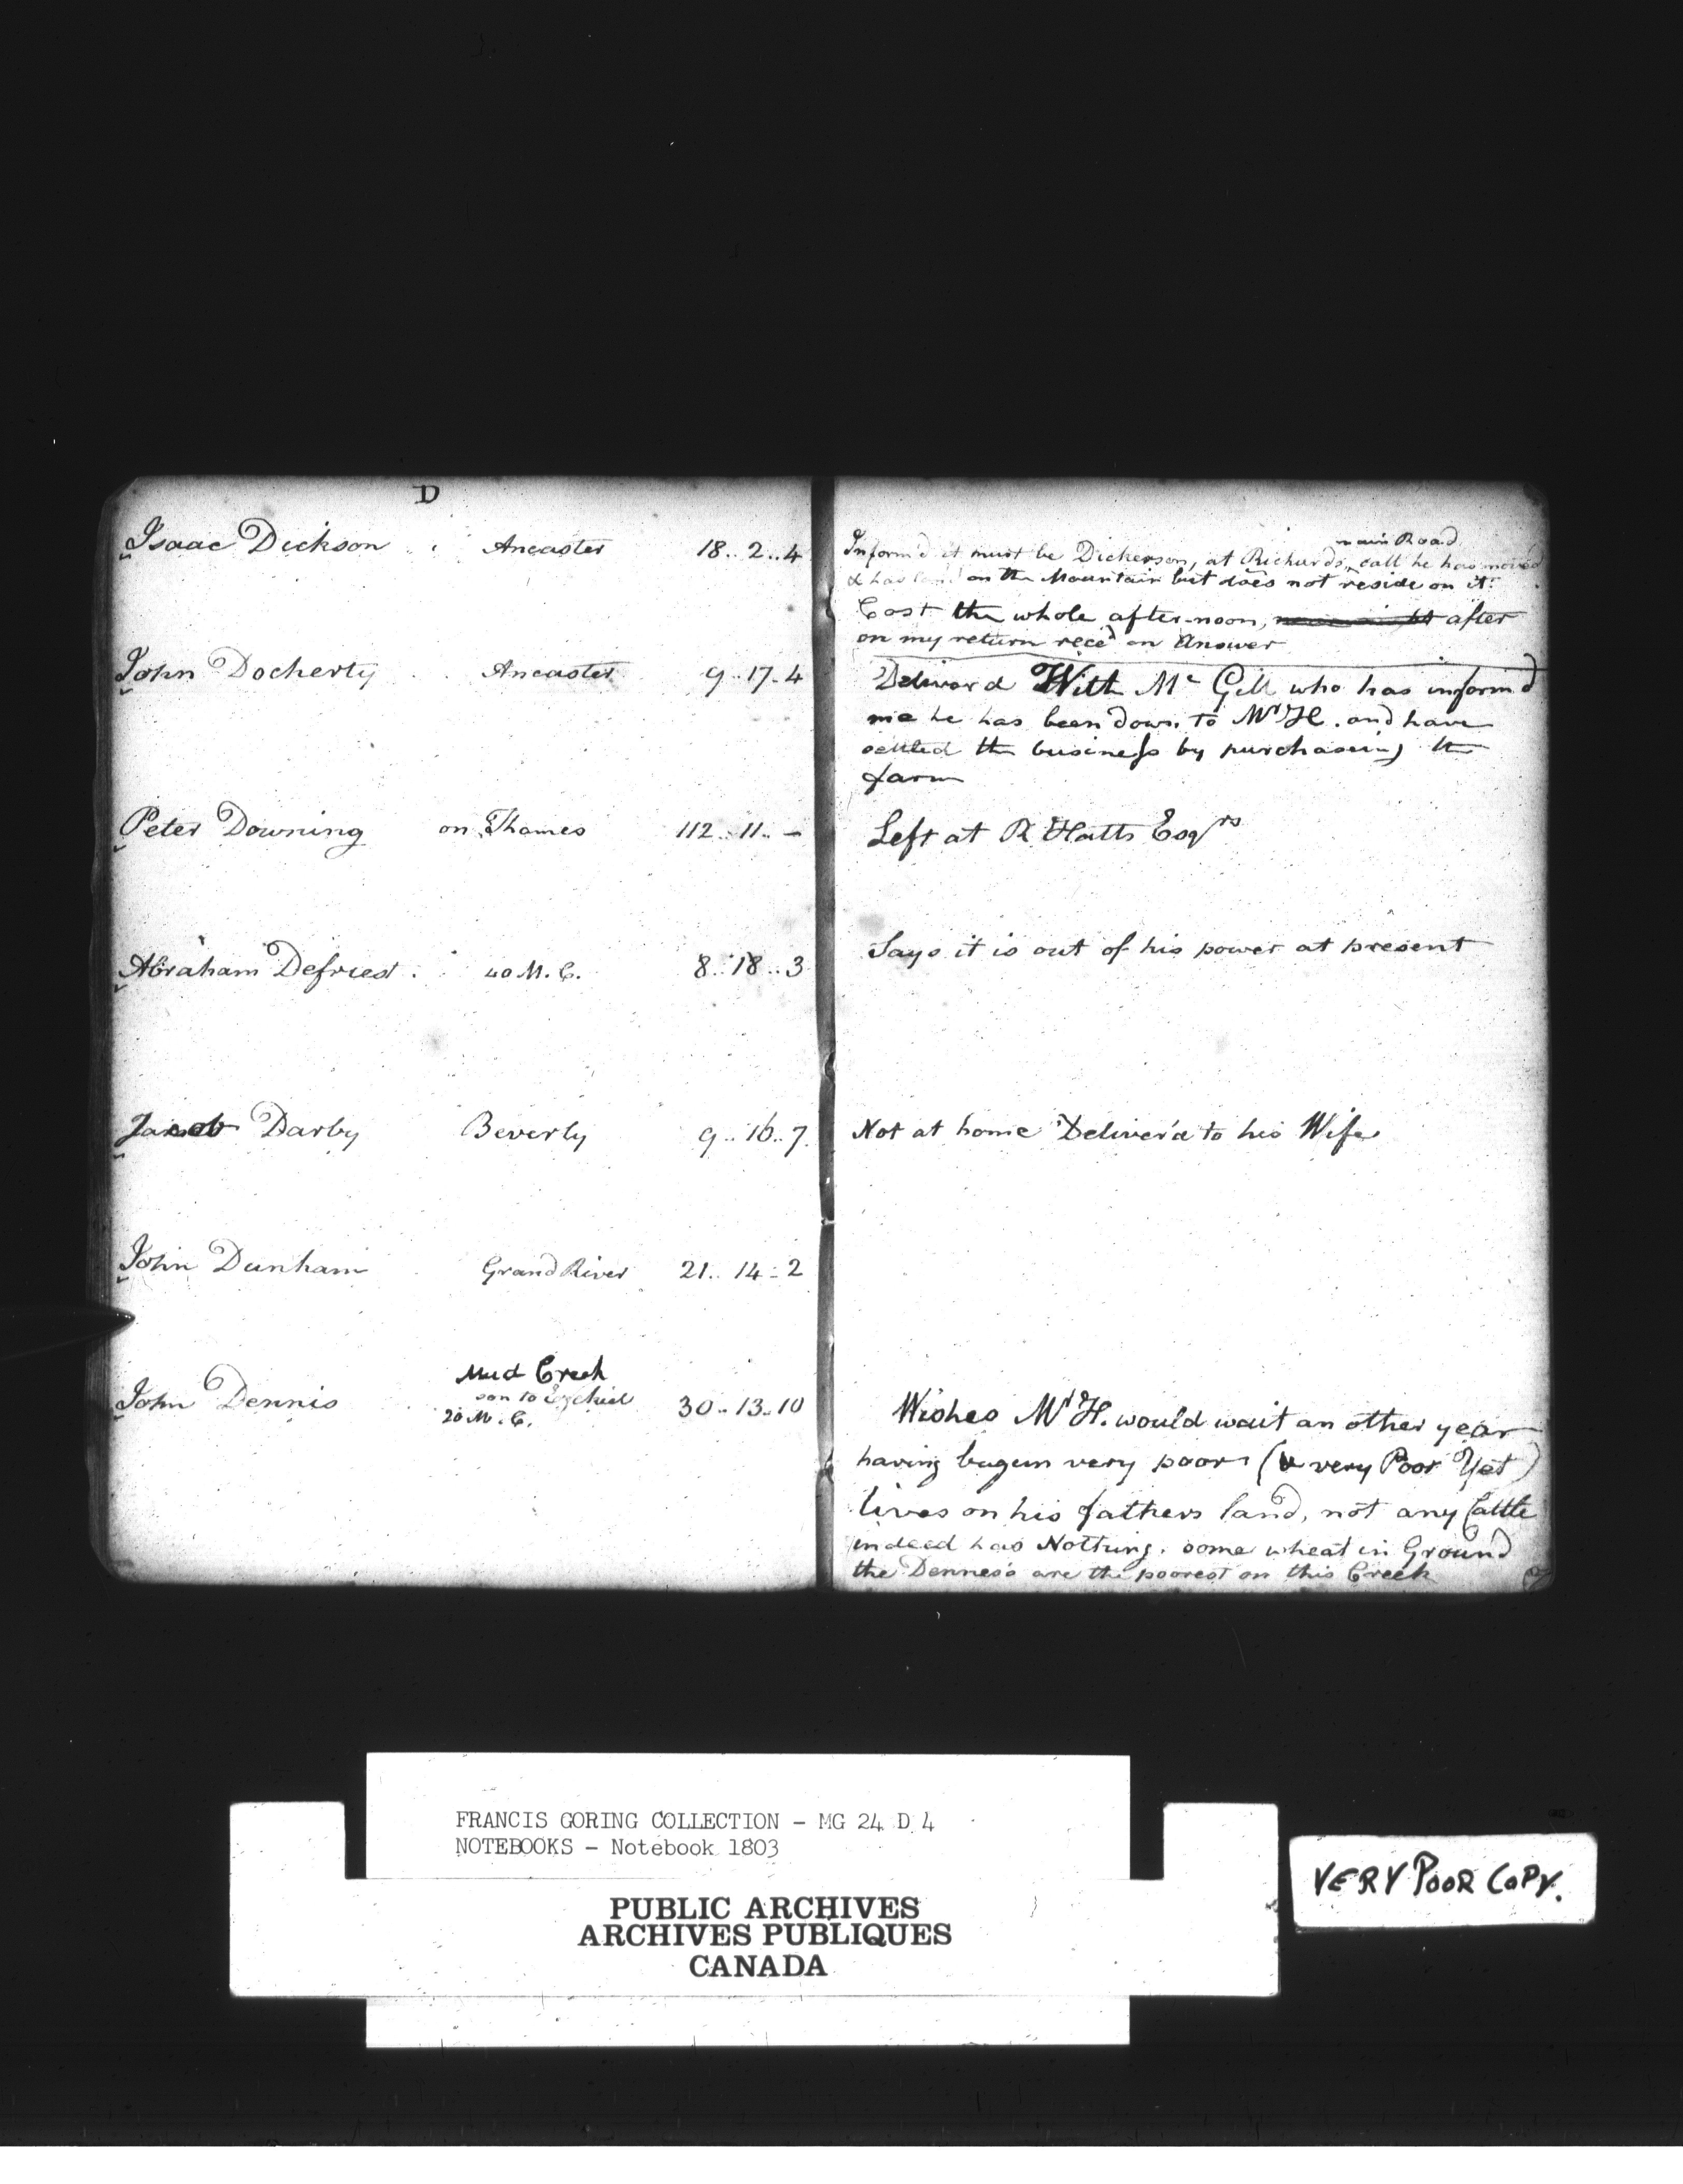 D
Isaac Dickson Ancaster 18..2..4
main Road
Inform'd it must be Dickerson, at Richards, call he has moved
& has land on the Mountain but does not reside on it.
Cost the whole after-noon, after
on my return rece'd an Answer
John Docherty Ancaster 9..17..4
Deliver'd With Mc Gill who has inform'd
me he has been down to Mr H. and have
settled the business by purchasing the
farm
Peter Downing on Thames 112..11..-
Left at R Hatts Esqrs
Abraham Defriest 40 M.C. 8..18..3
Says it is out of his power at present
Darby Beverly 9..16..7
Not at home Deliver'd to his Wife
John Dunham Grand River 21..14..2
Mud Creek
son to Ezekiel
John Dennis 20 M.C. 30..13..10
Wishes Mr H. would wait an other year
having begun very poor (& very Poor Yet)
lives on his fathers land, not any Cattle
indeed has Nothing. some wheat in Ground
the Dennes's are the poorest on this Creek
FRANCIS GORING COLLECTION - MG 24 D 4
NOTEBOOKS - Notebook 1803
PUBLIC ARCHIVES
ARCHIVES PUBLIQUES
CANADA
VERY POOR COPY.